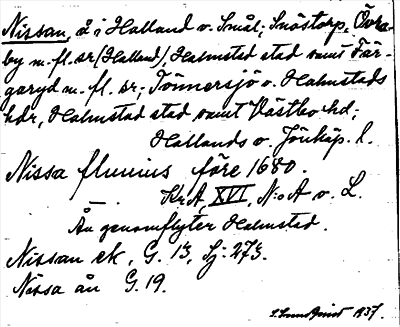 Nissan, å i Halland o. Smål.; Snöstorp, Övra-
by m. fl. sr (Halland), Halmstad stad samt Fär-
garyd m. fl. sr; Tönnersjö o. Halmstads
hdr, Halmstad stad samt Västbo hd;
Hallands o. Jönköp. l.
Nissa fluvius före 1680.
Kr A, XVI, N:o A o. L.
Ån genomflyter Halmstad.
Nissan ek, G. 13, Sj: 273.
Nissa ån G. 19.
1937.